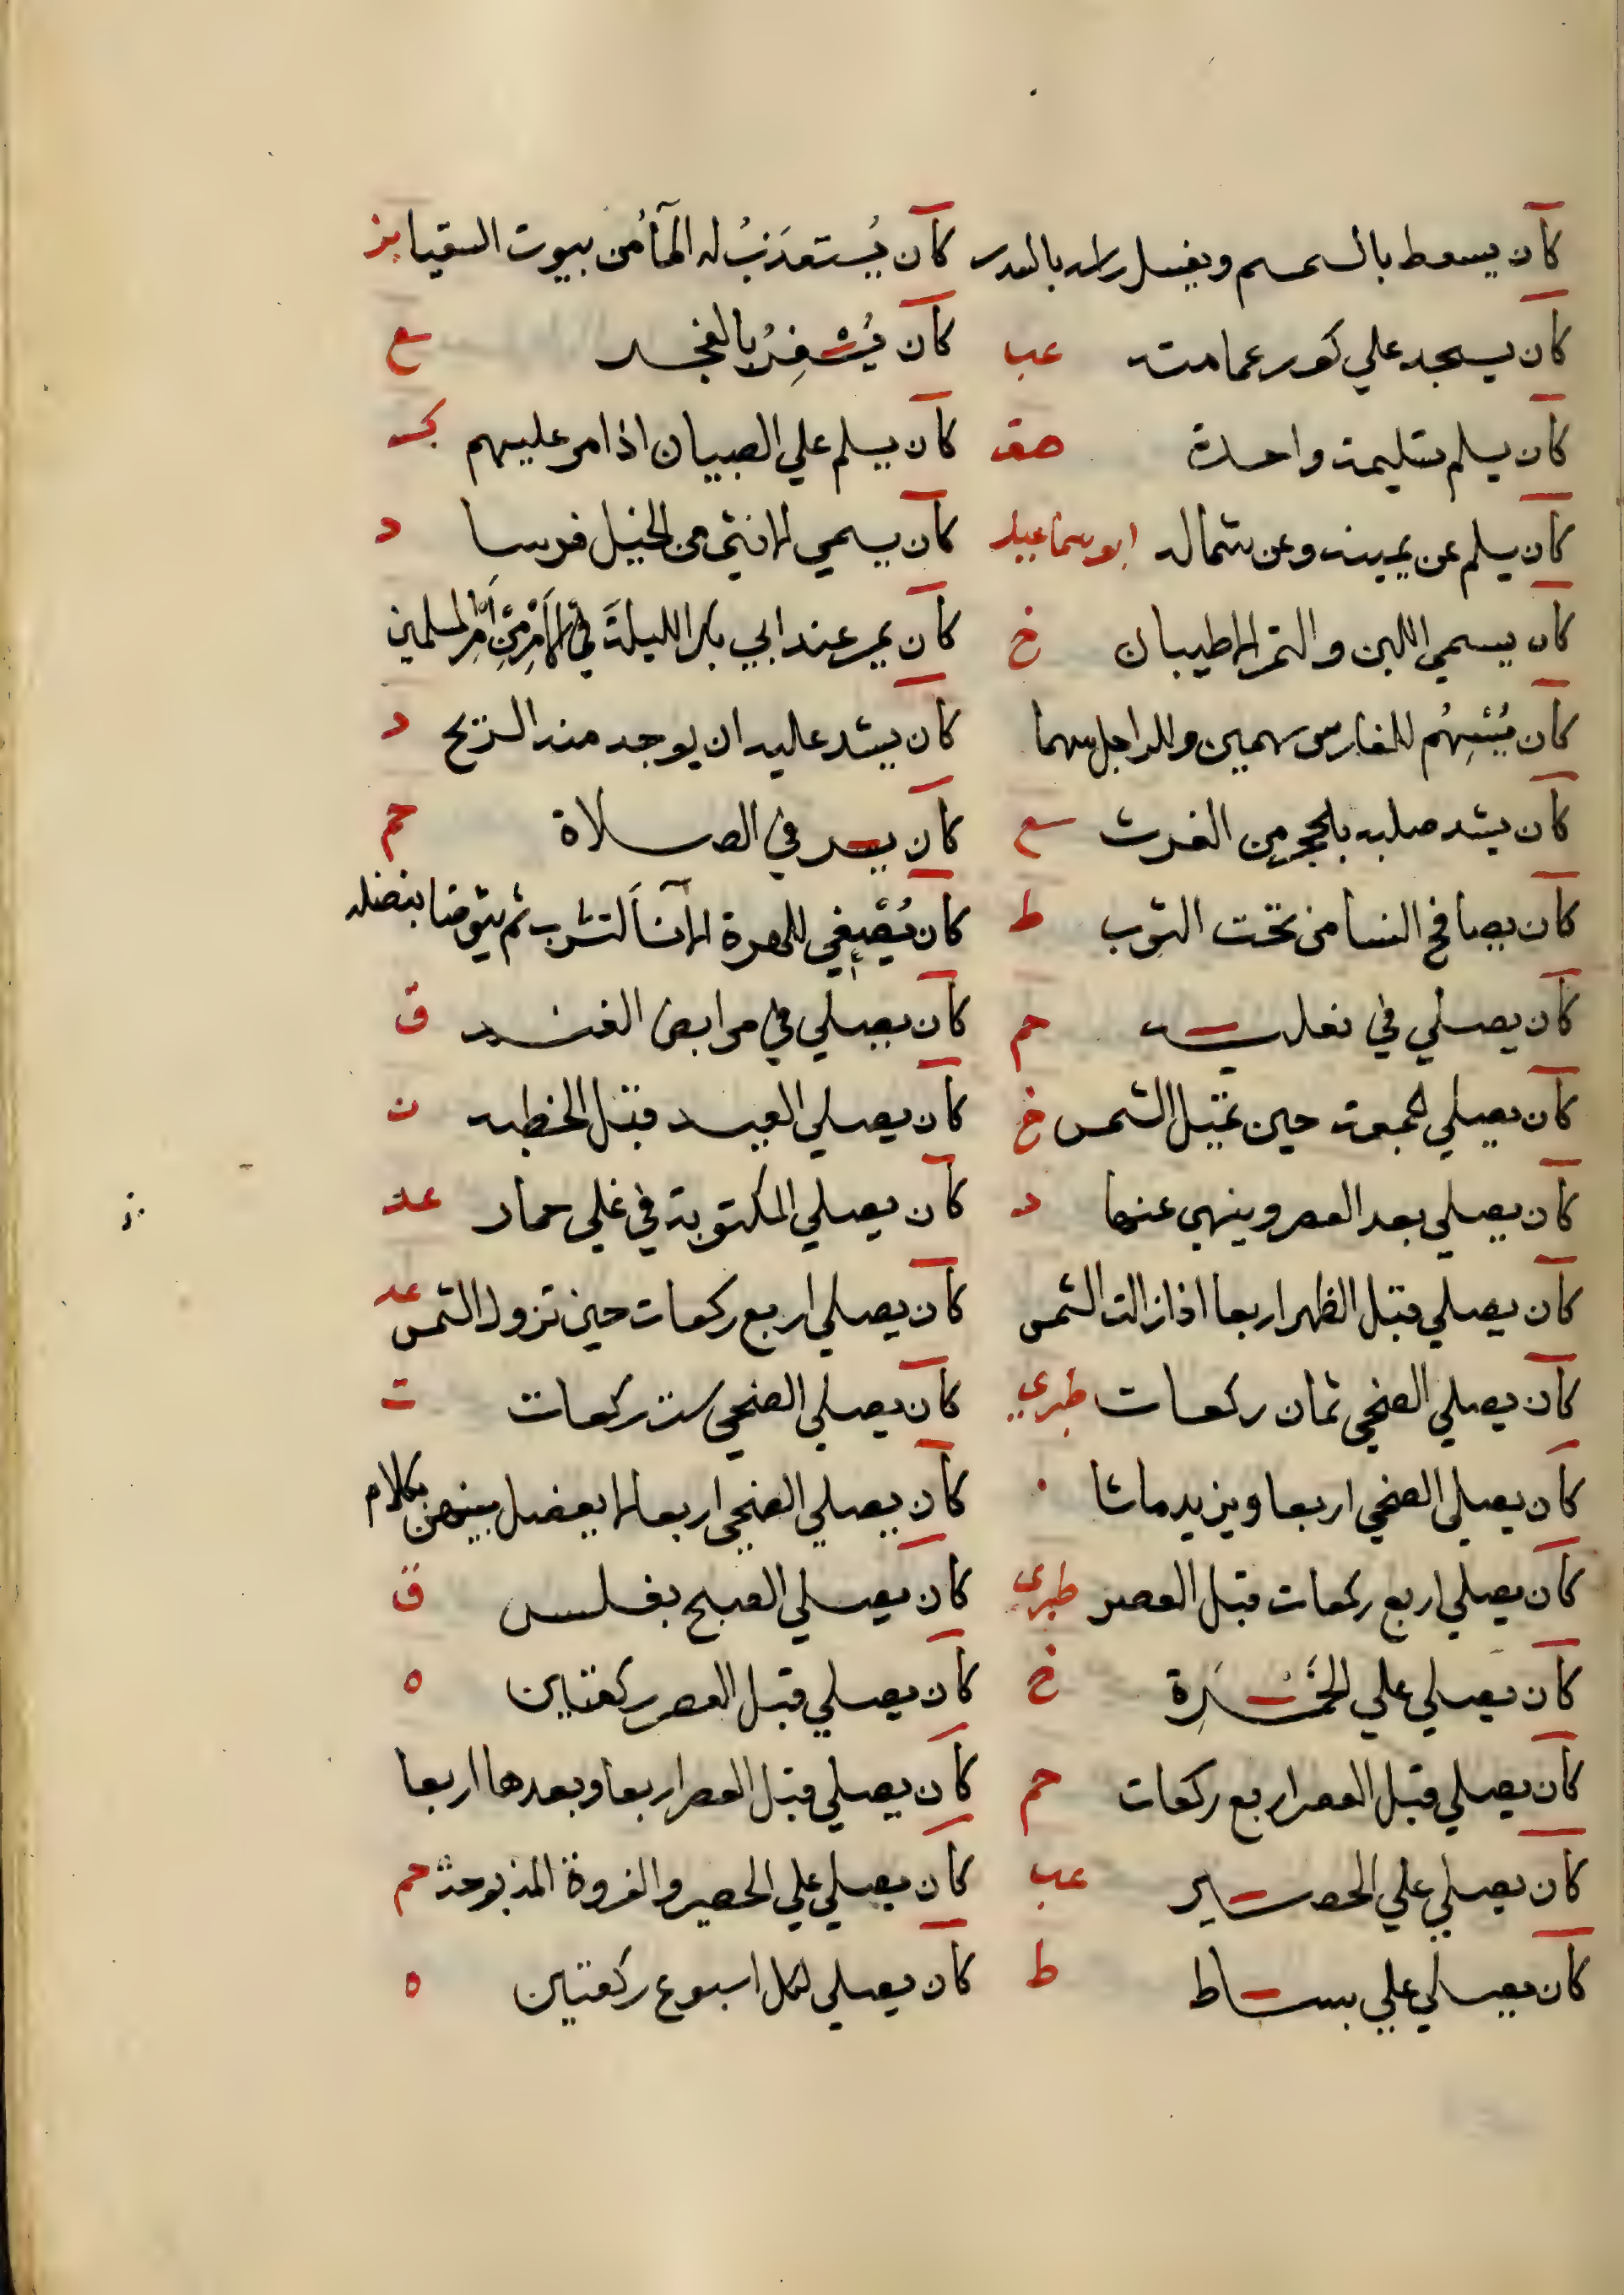 كان يسعط بالسمسم ويغسل راسه بالسدر كان يُستعذَبُ له المآ من بيوت السقيا بز
كان يسجد علي كور عمامته عب كان يُسْفِرُ بالفجر ع
كان يسلم تسليمة واحدة صق كان يسلم علي الصبيان اذا مر عليهم ك
كان يسلم عن يمينه وعن شماله ابو سماعيل كان يسمي الانثي من الخيل فرسا د
كان يسمي اللبن والتمر الاطيبان خ كان يمر عند ابي بكر الليلة في الامر من امر المسلمين
كان يُسْهِمُ للفارس سهمين وللراجل سهما كان يشد عليه ان يوجد منه الريح د
كان يشد صلبه بالحجر من الغرث سع كان يسر في الصلاة حم
كان يصافح النسا من تحت الثوب ط كان يُصْغي للهرة الانآ لتشرب ثم يتوضا بفضله
كان يصلي في نعليه حم كان يصلي في مرابض الغنم ق
كان يصلي الجمعة حين تميل الشمس خ كان يصلي العيد قبل الخطبه ن
كان يصلي بعد العصر وينهي عنها د كان يصلي المكتوبة في علي حمار عد
كان يصلي قبل الظهر اربعا اذا زالت الشمس كان يصلي اربع ركعات حين تزول الشمس عد
كان يصلي الضحي ثمان ركعات طبري كان يصلي الضحي ست ركعات ت
كان يصلي الضحي اربعا ويزيد ما شا كان يصلي الضحي اربعا لا يفصل بينهن بكلام
كان يصلي اربع ركعات قبل العصر طبري كان يصلي الصبح بغلس ق
كان يصلي علي الخُمْرَةِ خ كان يصلي قبل العصر ركعتين ه
كان يصلي قبل العصر اربع ركعات حم كان يصلي قبل العصر اربعا وبعدها اربعا
كان يصلي علي الحصير عب كان يصلي علي الحصير والفروة المذبوحة حم
كان يصلي علي بساط ط كان يصلي لكل اسبوع ركعتين ه